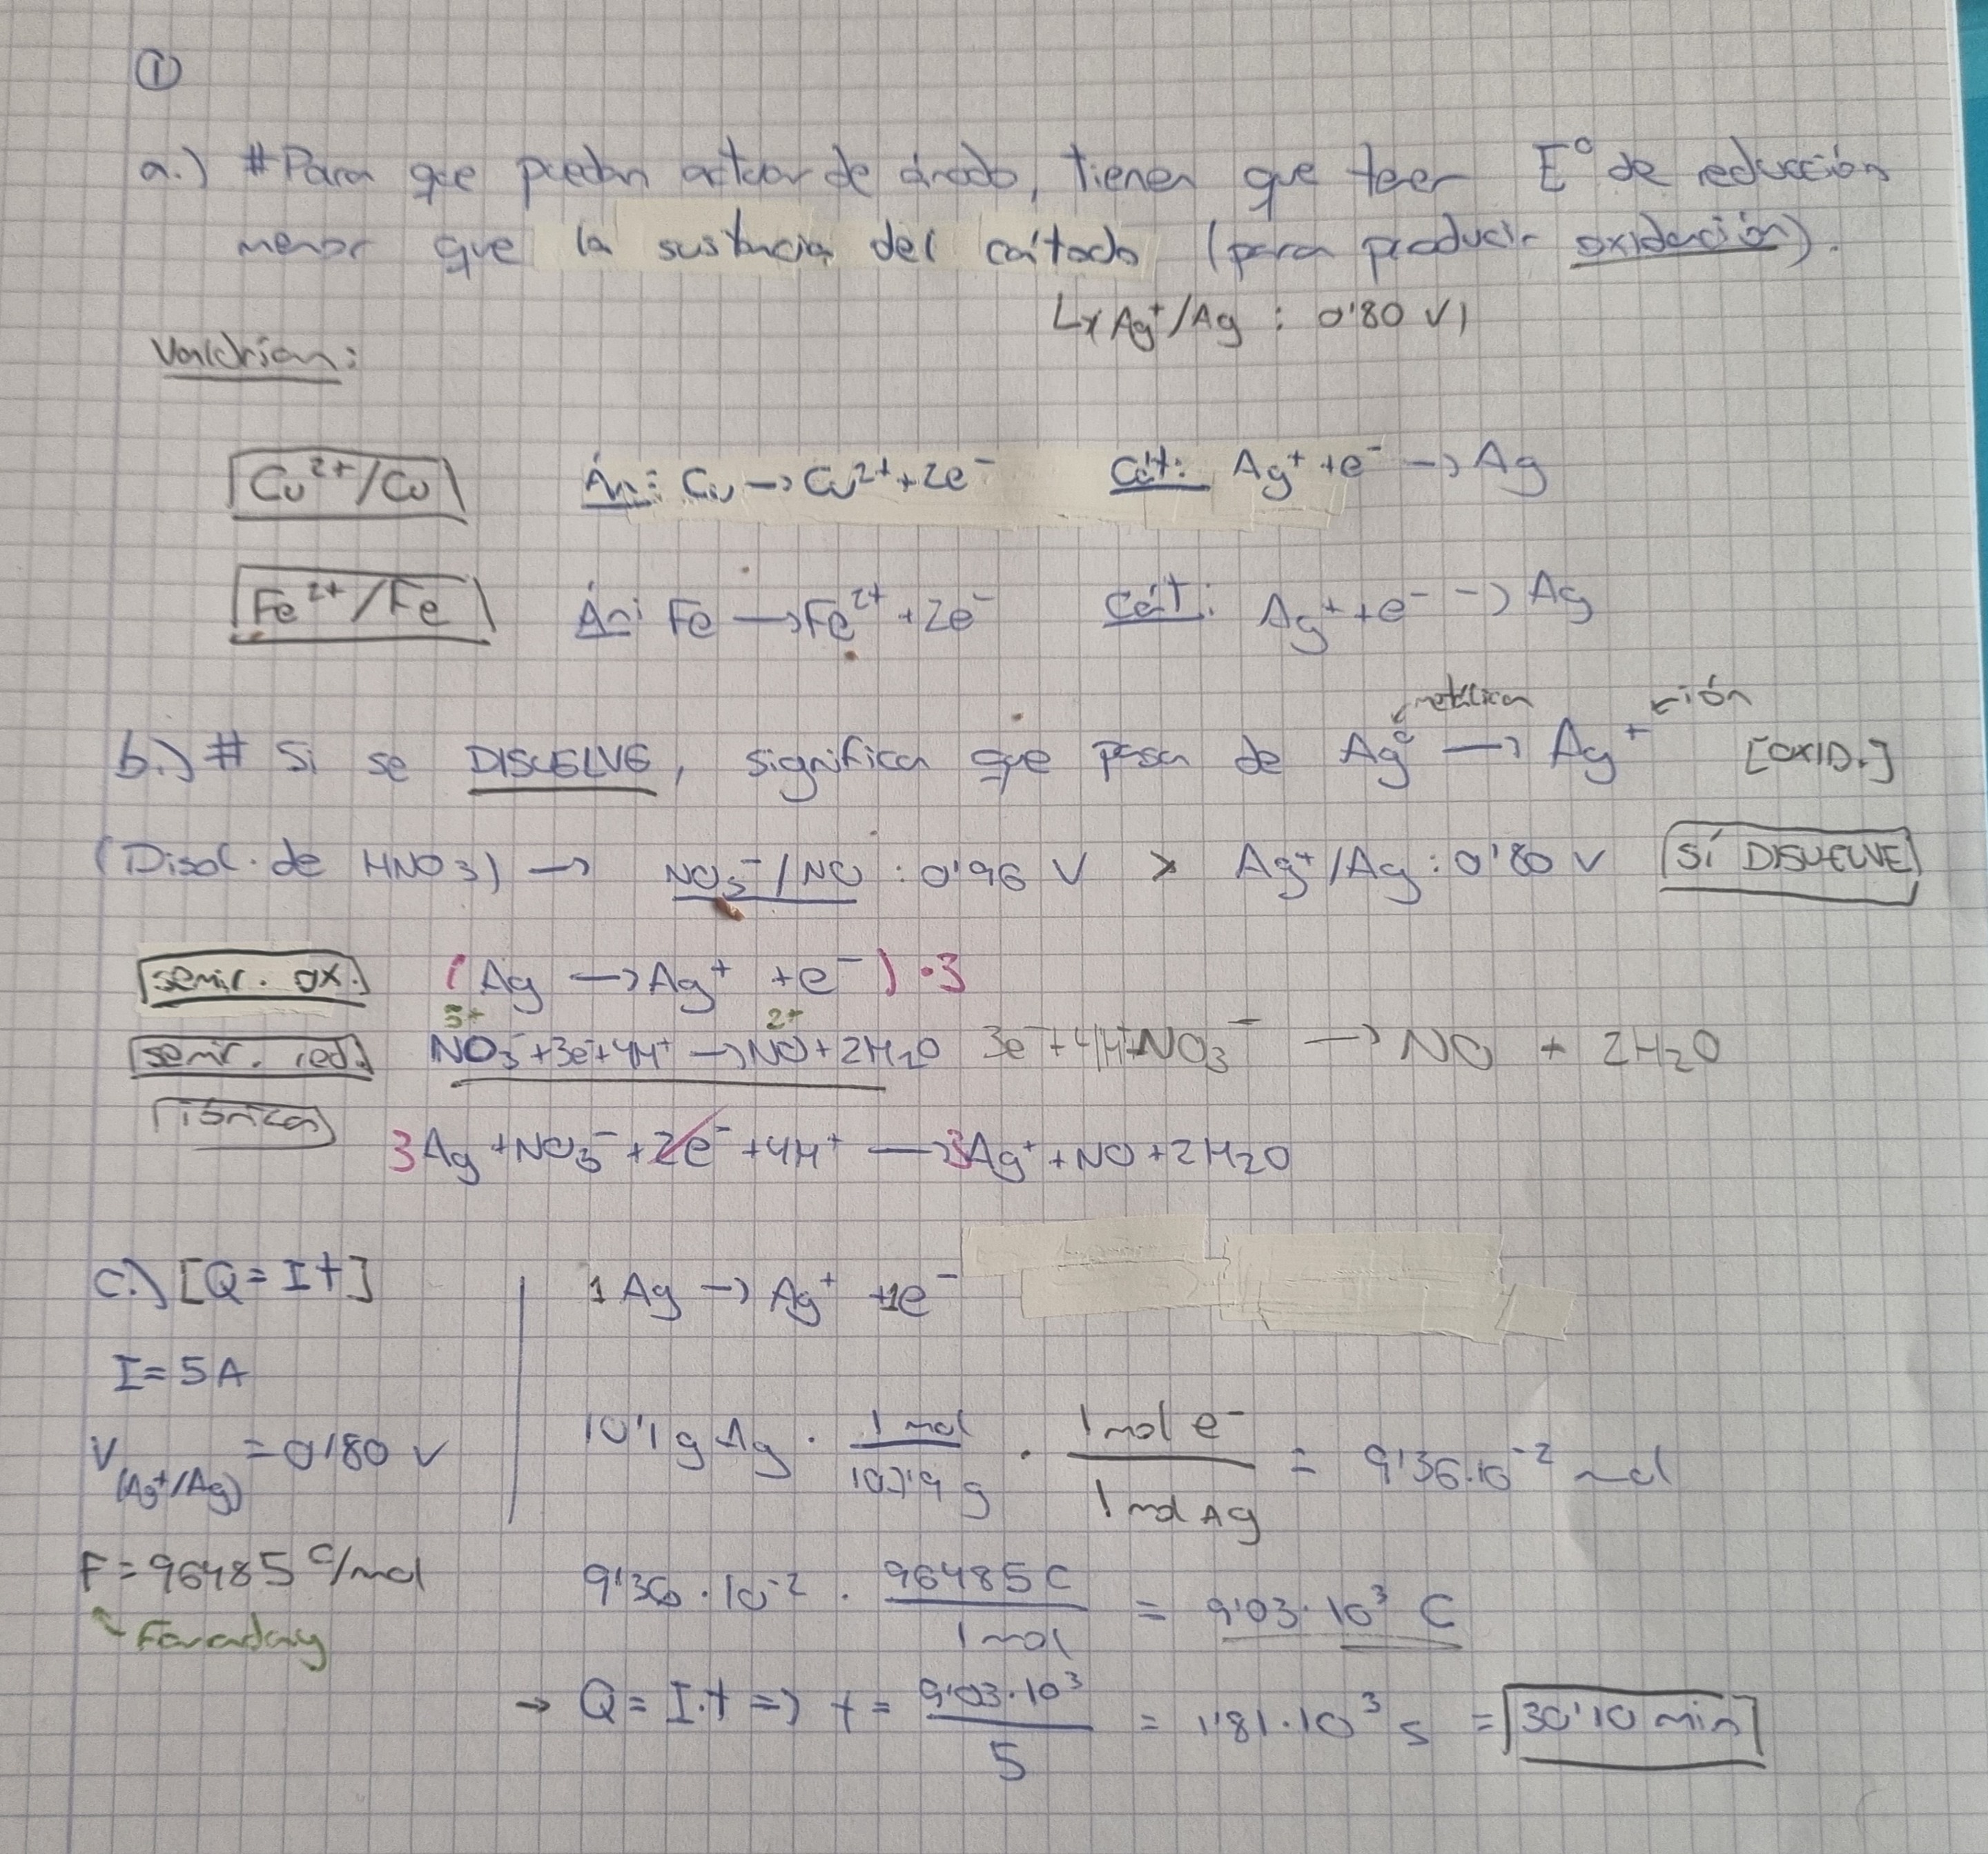 ①
a.) #Para que puedan actuar de ánodo, tienen que tener E° de reducción
menor que la sustancia del cátodo (para producir oxidación).
↳ Ag⁺/Ag : 0'80 V)
Valdrían:
Cu²⁺/Cu Án: Cu → Cu²⁺ + 2e⁻ Cát: Ag⁺ + e⁻ → Ag
Fe²⁺/Fe Án: Fe → Fe²⁺ + 2e⁻ Cát: Ag⁺ + e⁻ → Ag
metálica ión
b.) # Si se DISUELVE, significa que pasa de Ag⁰ → Ag⁺ [OXID.]
(Disol. de HNO3) → NO₃⁻/NO : 0'96 V > Ag⁺/Ag : 0'80 V SÍ DISUELVE
semir. ox. (Ag → Ag⁺ + e⁻) · 3
5+ 2+
semir. red. NO₃⁻ + 3e⁻ + 4H⁺ → NO + 2H₂O 3e⁻ + 4H⁺ + NO₃⁻ → NO + 2H₂O
iónica
3Ag + NO₃⁻ + 2e⁻ + 4H⁺ → 3Ag⁺ + NO + 2H₂O
c.) [Q = It] 1 Ag → Ag⁺ + 1e⁻
I = 5A
V(Ag⁺/Ag) = 0'80 V 10'1 g Ag · 1 mol / 107'9 g · 1 mol e⁻ / 1 mol Ag = 9'36·10⁻² mol
F = 96485 C/mol 9'36·10⁻² · 96485 C / 1 mol = 9'03·10³ C
Faraday
→ Q = I·t => t = 9'03·10³ / 5 = 1'81·10³ s = 30'10 min